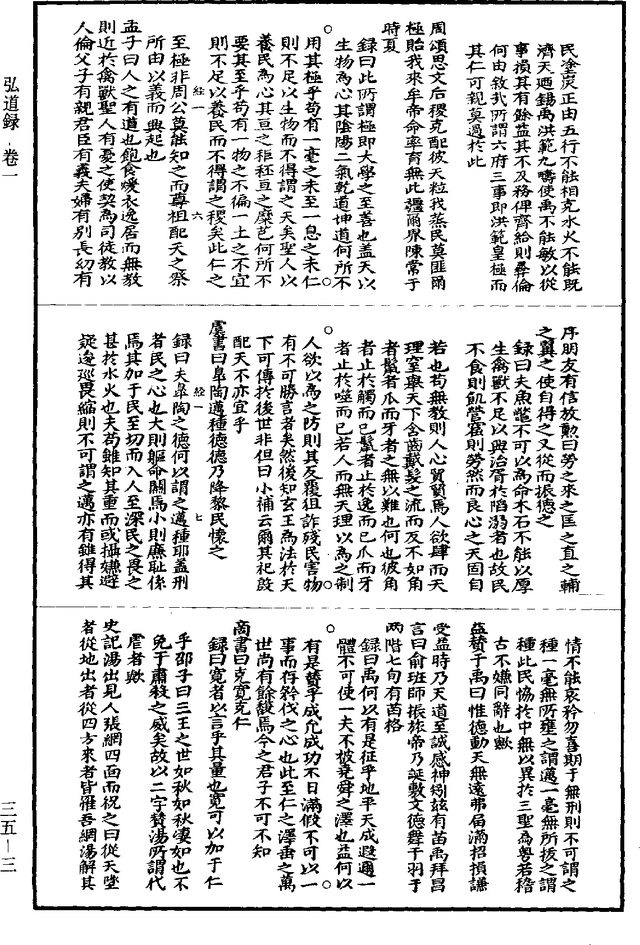 弘道録 卷一
三五—三
民塗炭正由五行不能相克水火不能既
濟天迺錫禹洪範九疇使禹不能敏以從
事損其有餘益其不及務俾齊給則彝倫
何由敘我所謂六府三事即洪範皇極而
其仁可親莫過於此
周頌思文后稷克配彼天粒我蒸民莫匪爾
極貽我來牟帝命率育無此疆爾界陳常于
時夏
録曰此所謂極即大學之至善也蓋天以
生物為心其陰陽二氣乾道坤道何所不
用其極乎苟有一毫之未至一息之未仁
則不足以生物而不得謂之天矣聖人以
養民為心其亘之秬秠亘之糜芑何所不
要其至乎苟有一物之不徧一土之不宜
則不足以養民而不得謂之稷矣此仁之
經一 六
至極非周公莫能知之而尊祖配天之祭
所由以義而興起也
孟子曰人之有道也飽食煖衣逸居而無教
則近於禽獸聖人有憂之使契為司徒教以
人倫父子有親君臣有義夫婦有別長幼有
序朋友有信放勳曰勞之來之匡之直之輔
之翼之使自得之又從而振德之
録曰夫魚鼈不可以為命木石不能以厚
生禽獸不足以興治胥於陷溺者也故民
不食則飢營窟則勞然而良心之天固自
若也苟無教則人心貿貿焉人欲肆而天
理窒舉天下含齒戴髮之流而反不如角
者鬣者爪而牙者之無以難也何也彼角
者止於觸而已鬣者止於逸而已爪而牙
者止於噬而已若人而無天理以為之制
人欲以為之防則其反覆狙詐殘民害物
有不可勝言者矣然後知玄王為法於天
下可傳於後世非但曰小補云爾其祀設
配天不亦宜乎
虞書曰皋陶邁種德德乃降黎民懷之
經一 七
録曰夫皋陶之德何以謂之邁種耶蓋刑
者民之心也大則軀命關焉小則廉恥係
焉其加于民至切而入人至深民之畏之
甚於水火也夫苟雖知其重而或攝嫌避
疑逡巡畏縮則不可謂之邁亦有雖得其
情不能哀矜勿喜期于無刑則不可謂之
種一毫無所壅之謂邁一毫無所拔之謂
種此民協於中無以異於三聖為粤若稽
古不嫌同辭也歟
益贊于禹曰惟德動天無遠弗屆滿招損謙
受益時乃天道至誠感神矧兹有苗禹拜昌
言曰俞班師振旅帝乃誕敷文德舞干羽于
兩階七旬有苗格
録曰禹何以有是征乎地平天成遐邇一
體不可使一夫不被堯舜之澤也益何以
有是贊乎成允成功不日滿假不可以一
事而存矜伐之心也此至仁之澤垂之萬
世尚有餘馥焉今之君子不可不知
商書曰克寬克仁
録曰寬者以言乎其量也寬可以加于仁
乎邵子曰三王之世如秋如秋淒如也不
免于肅殺之威矣故以二字贊湯所謂代
虐者歟
史記湯出見人張網四面而祝之曰從天墜
者從地出者從四方來者皆罹吾網湯解其